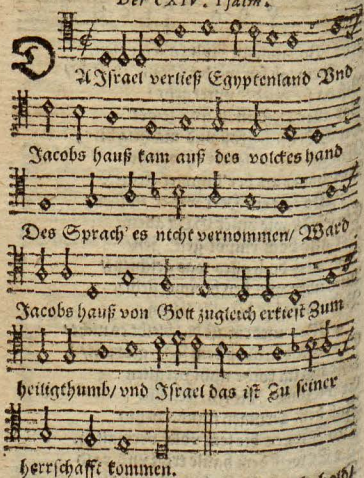 Der CXIV. Psalm.
DA Israel verließ Egyptenland Vnd
Jacobs hauß kam auß des volckes hand
Des Sprach' es nicht vernommen/ Ward
Jacobs hauß von Gott zugleich erkiest Zum
heiligthumb/ vnd Israel das ist Zu seiner
herrschafft kommen.